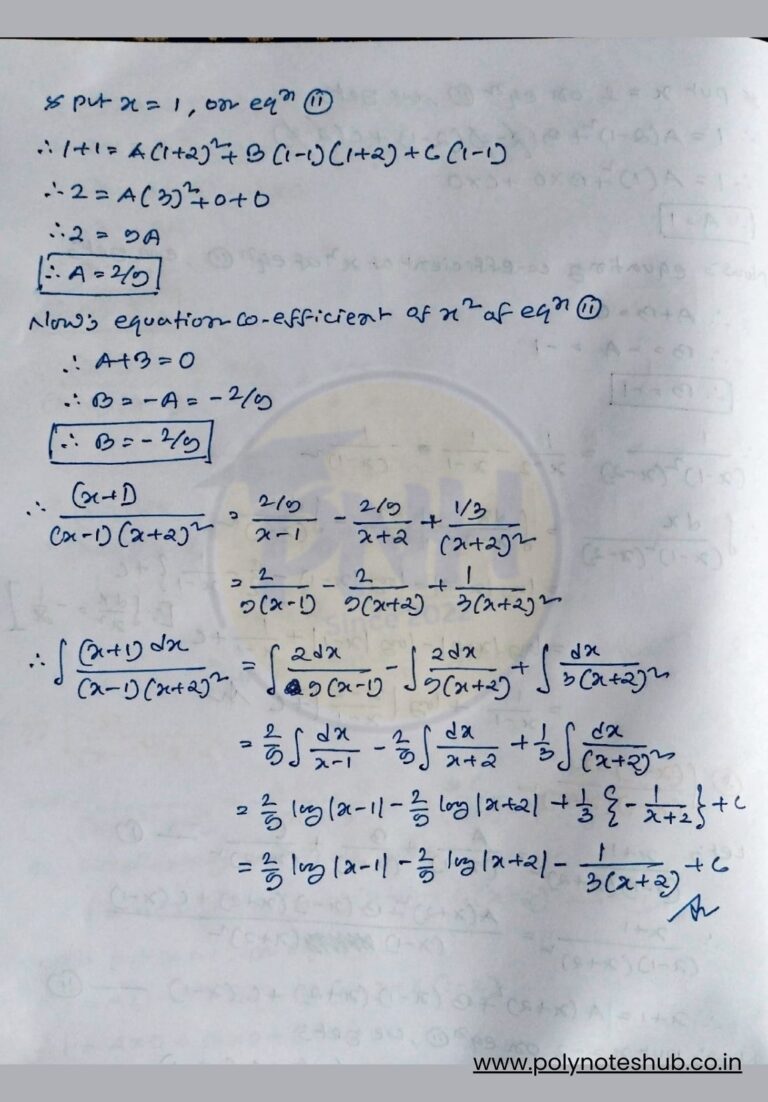 & put x = 1, on eqⁿ ⑪
∴ 1+1 = A(1+2)² + B(1-1)(1+2) + C(1-1)
∴ 2 = A(3)² + 0 + 0
∴ 2 = 9A
∴ A = 2/9
Now, equation co-efficient of x² of eqⁿ ⑪
∴ A+B = 0
∴ B = -A = -2/9
∴ B = -2/9
∴ (x+1)/((x-1)(x+2)²) = (2/9)/(x-1) - (2/9)/(x+2) + (1/3)/(x+2)²
= 2/(9(x-1)) - 2/(9(x+2)) + 1/(3(x+2)²)
Since 2022
∴ ∫ (x+1) dx/((x-1)(x+2)²) = ∫ 2dx/(9(x-1)) - ∫ 2dx/(9(x+2)) + ∫ dx/(3(x+2)²)
= 2/9 ∫ dx/(x-1) - 2/9 ∫ dx/(x+2) + 1/3 ∫ dx/(x+2)²
= 2/9 log|x-1| - 2/9 log|x+2| + 1/3 {-1/(x+2)} + C
= 2/9 log|x-1| - 2/9 log|x+2| - 1/(3(x+2)) + C
www.polynoteshub.co.in